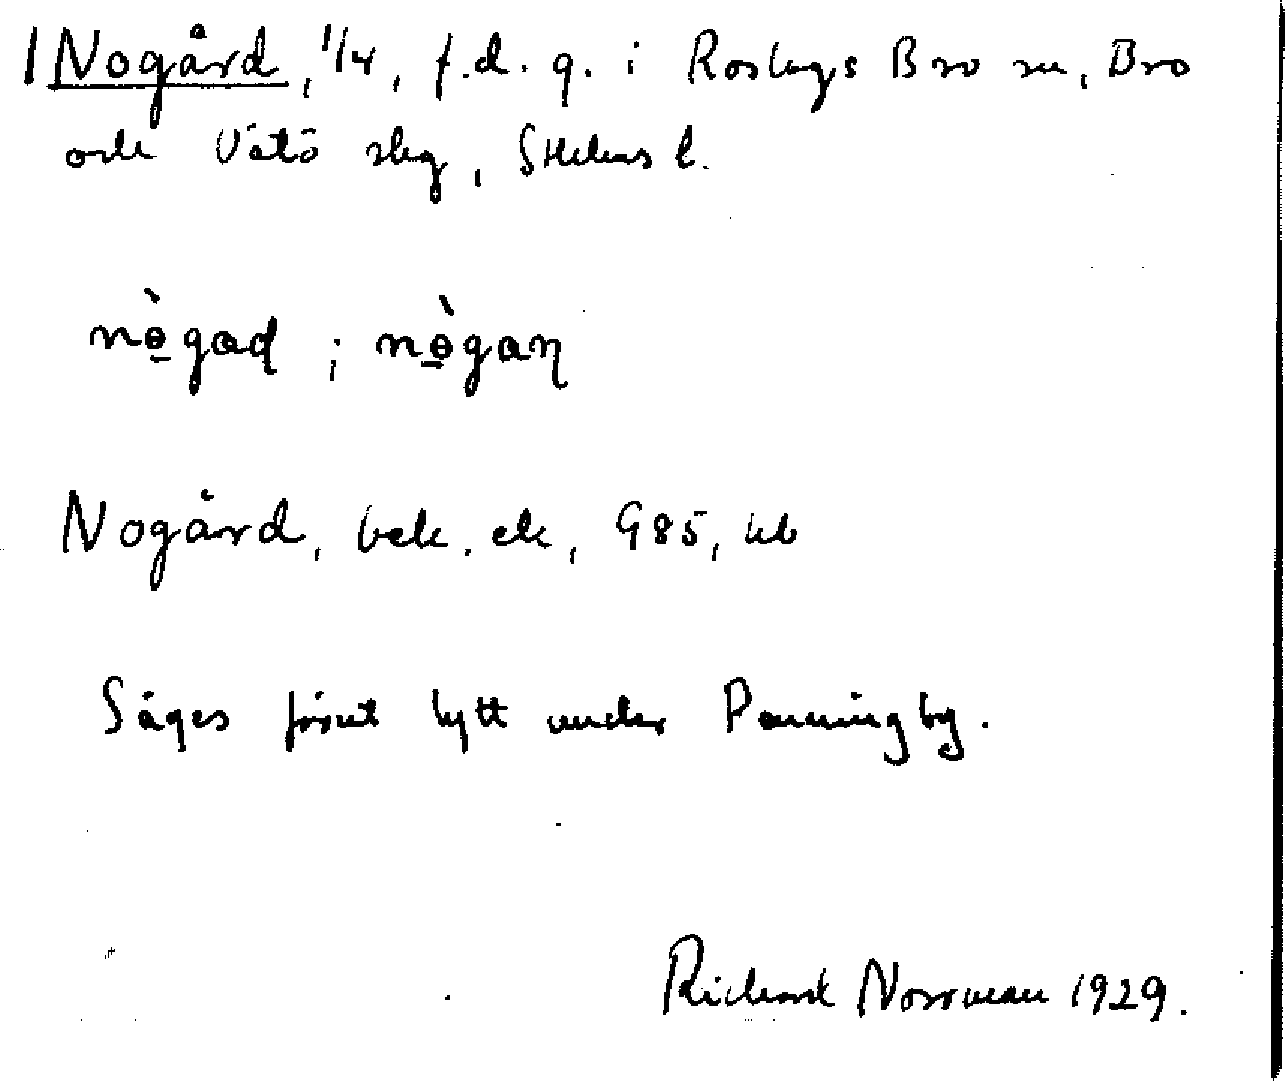 Nogård, 1/4, f.d. g. i Roslags Bro sn, Bro
och Vätö slg, Sthlms l.
nò̱gad ; nò̱gaŋ
Nogård, bek. ek, G85, kb
Säges förut lytt under Penningby.
Richard Norrman 1929.